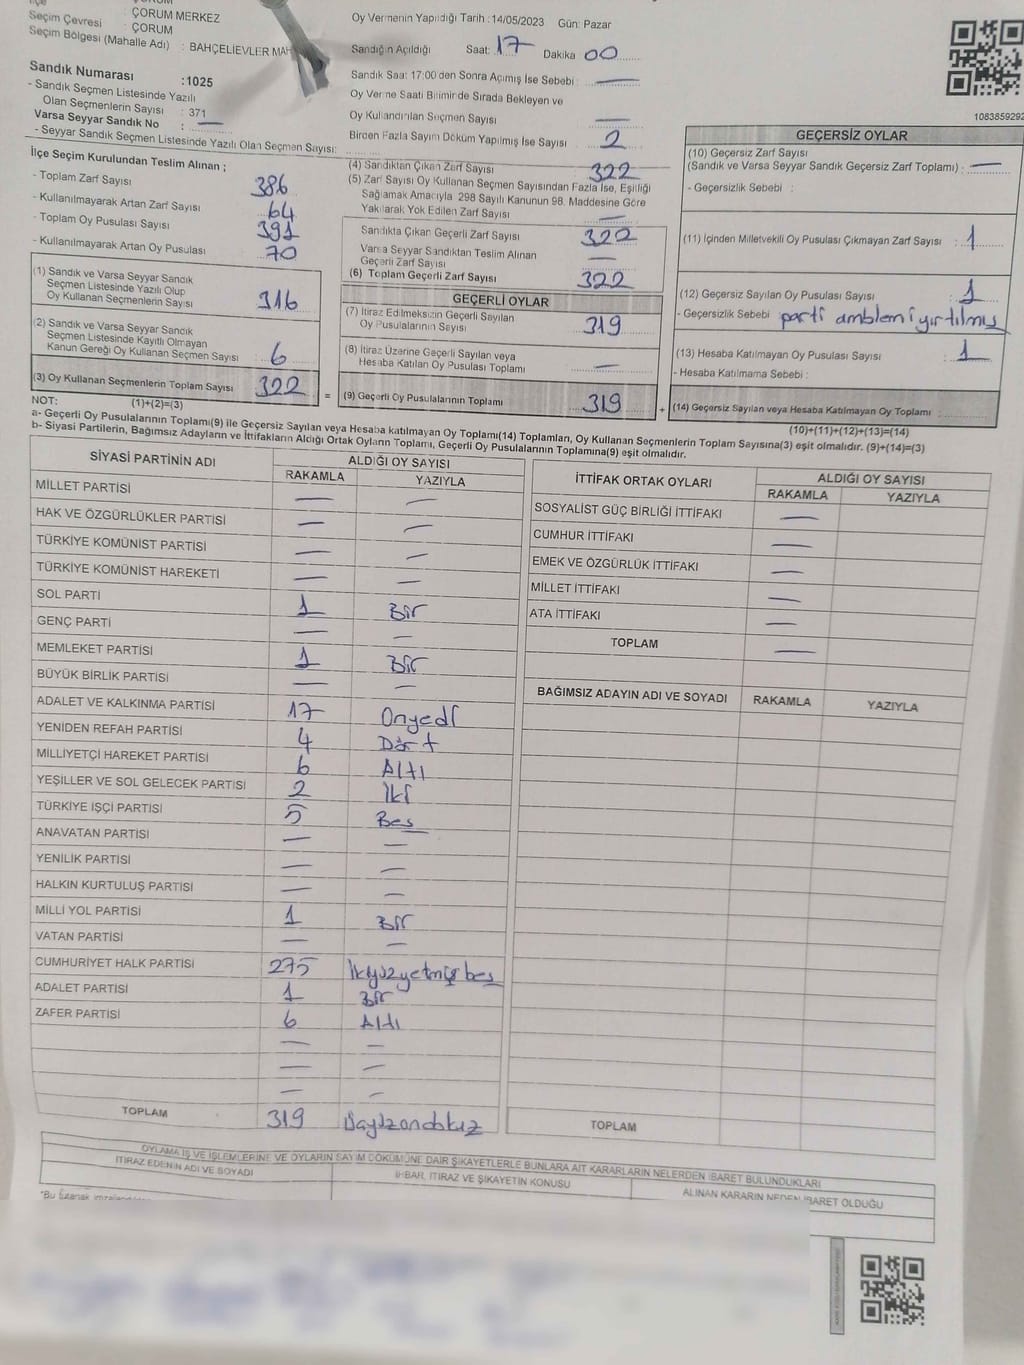 Seçim Çevresi : ÇORUM MERKEZ
ÇORUM
Seçim Bölgesi (Mahalle Adı) : BAHÇELİEVLER MAH
Sandık Numarası : 1025
- Sandık Seçmen Listesinde Yazılı
Olan Seçmenlerin Sayısı : 371
Varsa Seyyar Sandık No : —
- Seyyar Sandık Seçmen Listesinde Yazılı Olan Seçmen Sayısı:
İlçe Seçim Kurulundan Teslim Alınan ;
- Toplam Zarf Sayısı 386
- Kullanılmayarak Artan Zarf Sayısı 64
- Toplam Oy Pusulası Sayısı 391
- Kullanılmayarak Artan Oy Pusulası 70
(1) Sandık ve Varsa Seyyar Sandık
Seçmen Listesinde Yazılı Olup
Oy Kullanan Seçmenlerin Sayısı 316
(2) Sandık ve Varsa Seyyar Sandık
Seçmen Listesinde Kayıtlı Olmayan
Kanun Gereği Oy Kullanan Seçmen Sayısı : 6
(3) Oy Kullanan Seçmenlerin Toplam Sayısı 322
Oy Vermenin Yapıldığı Tarih : 14/05/2023 Gün: Pazar
Sandığın Açıldığı Saat: 17 Dakika 00
Sandık Saat 17:00'den Sonra Açımış İse Sebebi : —
Oy Verme Saati Bitiminde Sırada Bekleyen ve
Oy Kullandırılan Seçmen Sayısı —
Birden Fazla Sayım Döküm Yapılmış İse Sayısı 2
(4) Sandıktan Çıkan Zarf Sayısı 322
(5) Zarf Sayısı Oy Kullanan Seçmen Sayısından Fazla İse, Eşitliği
Sağlamak Amacıyla 298 Sayılı Kanunun 98. Maddesine Göre
Yakılarak Yok Edilen Zarf Sayısı —
Sandıkta Çıkan Geçerli Zarf Sayısı 322
Varsa Seyyar Sandıktan Teslim Alınan
Geçerli Zarf Sayısı —
(6) Toplam Geçerli Zarf Sayısı 322
GEÇERLİ OYLAR
(7) İtiraz Edilmeksizin Geçerli Sayılan
Oy Pusulalarının Sayısı 319
(8) İtiraz Üzerine Geçerli Sayılan veya
Hesaba Katılan Oy Pusulası Toplamı —
= (9) Geçerli Oy Pusulalarının Toplamı 319
1083859292
GEÇERSİZ OYLAR
(10) Geçersiz Zarf Sayısı
(Sandık ve Varsa Seyyar Sandık Geçersiz Zarf Toplamı) : —
- Geçersizlik Sebebi :
(11) İçinden Milletvekili Oy Pusulası Çıkmayan Zarf Sayısı : 1
(12) Geçersiz Sayılan Oy Pusulası Sayısı : 1
- Geçersizlik Sebebi parti amblemi yırtılmış
(13) Hesaba Katılmayan Oy Pusulası Sayısı : 1
- Hesaba Katılmama Sebebi :
+ (14) Geçersiz Sayılan veya Hesaba Katılmayan Oy Toplamı :
NOT: (1)+(2)=(3) (10)+(11)+(12)+(13)=(14)
a- Geçerli Oy Pusulalarının Toplamı(9) ile Geçersiz Sayılan veya Hesaba katılmayan Oy Toplamı(14) Toplamları, Oy Kullanan Seçmenlerin Toplam Sayısına(3) eşit olmalıdır. (9)+(14)=(3)
b- Siyasi Partilerin, Bağımsız Adayların ve İttifakların Aldığı Ortak Oyların Toplamı, Geçerli Oy Pusulalarının Toplamına(9) eşit olmalıdır.
SİYASİ PARTİNİN ADI ALDIĞI OY SAYISI
RAKAMLA YAZIYLA
MİLLET PARTİSİ — —
HAK VE ÖZGÜRLÜKLER PARTİSİ — —
TÜRKİYE KOMÜNİST PARTİSİ — —
TÜRKİYE KOMÜNİST HAREKETİ — —
SOL PARTİ 1 Bir
GENÇ PARTİ — —
MEMLEKET PARTİSİ 1 Bir
BÜYÜK BİRLİK PARTİSİ — —
ADALET VE KALKINMA PARTİSİ 17 Onyedi
YENİDEN REFAH PARTİSİ 4 Dört
MİLLİYETÇİ HAREKET PARTİSİ 6 Altı
YEŞİLLER VE SOL GELECEK PARTİSİ 2 İki
TÜRKİYE İŞÇİ PARTİSİ 5 Beş
ANAVATAN PARTİSİ — —
YENİLİK PARTİSİ — —
HALKIN KURTULUŞ PARTİSİ — —
MİLLİ YOL PARTİSİ 1 Bir
VATAN PARTİSİ — —
CUMHURİYET HALK PARTİSİ 275 İkiyüzyetmişbeş
ADALET PARTİSİ 1 Bir
ZAFER PARTİSİ 6 Altı
— —
— —
— —
TOPLAM 319 Üçyüzondokuz
İTTİFAK ORTAK OYLARI ALDIĞI OY SAYISI
RAKAMLA YAZIYLA
SOSYALİST GÜÇ BİRLİĞİ İTTİFAKI —
CUMHUR İTTİFAKI —
EMEK VE ÖZGÜRLÜK İTTİFAKI —
MİLLET İTTİFAKI —
ATA İTTİFAKI —
TOPLAM —
BAĞIMSIZ ADAYIN ADI VE SOYADI RAKAMLA YAZIYLA
TOPLAM
OYLAMA İŞ VE İŞLEMLERİNE VE OYLARIN SAYIM DÖKÜMÜNE DAİR ŞİKAYETLERLE BUNLARA AİT KARARLARIN NELERDEN İBARET BULUNDUKLARI
İTİRAZ EDENİN ADI VE SOYADI İHBAR, İTİRAZ VE ŞİKAYETİN KONUSU ALINAN KARARIN NEDEN İBARET OLDUĞU